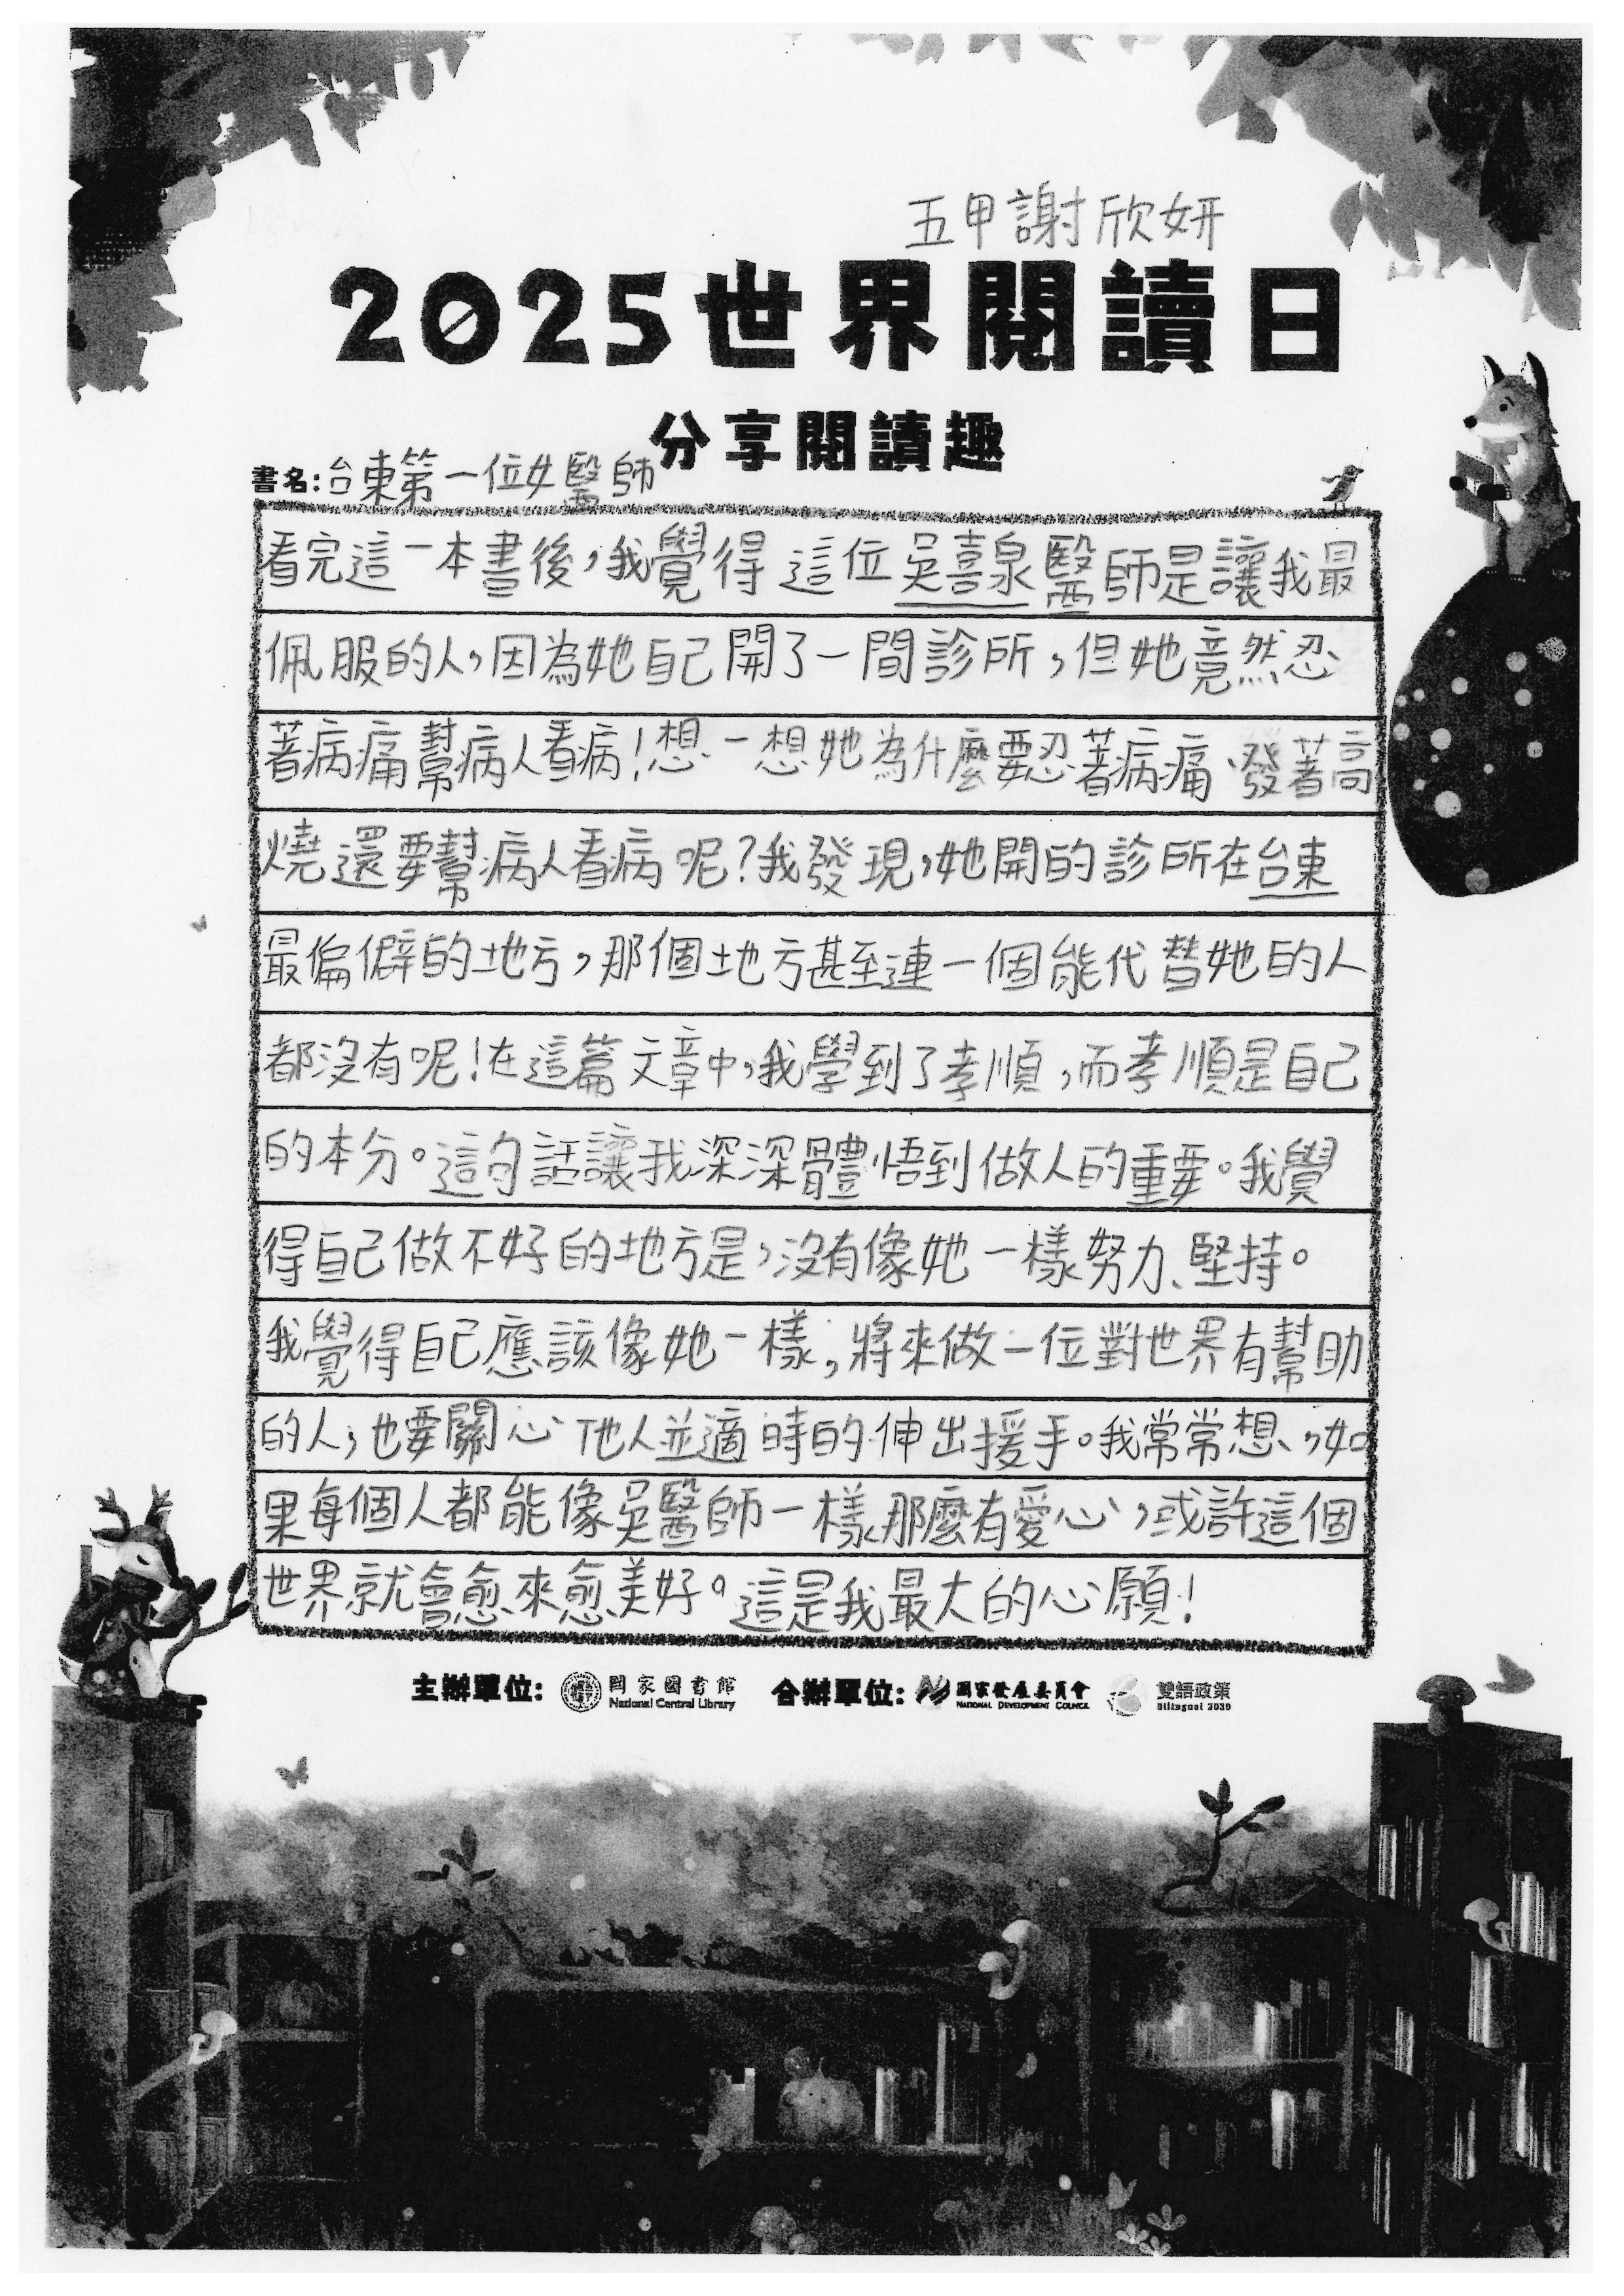 五甲謝欣妍
2025世界閱讀日
分享閱讀趣
書名:台東第一位女醫師
看完這一本書後,我覺得這位吳喜泉醫師是讓我最
佩服的人,因為她自己開了一間診所,但她竟然忍
著病痛幫病人看病!想一想她為什麼要忍著病痛、發著高
燒還要幫病人看病呢?我發現,她開的診所在台東
最偏僻的地方,那個地方甚至連一個能代替她的人
都沒有呢!在這篇文章中,我學到了孝順,而孝順是自己
的本分。這句話讓我深深體悟到做人的重要。我覺
得自己做不好的地方是,沒有像她一樣努力、堅持。
我覺得自己應該像她一樣,將來做一位對世界有幫助
的人,也要關心他人並適時的伸出援手。我常常想,如
果每個人都能像吳醫師一樣那麼有愛心,或許這個
世界就會愈來愈美好。這是我最大的心願!
主辦單位: 國家圖書館 National Central Library 合辦單位: 國家發展委員會 NATIONAL DEVELOPMENT COUNCIL 雙語政策 Bilingual 2030